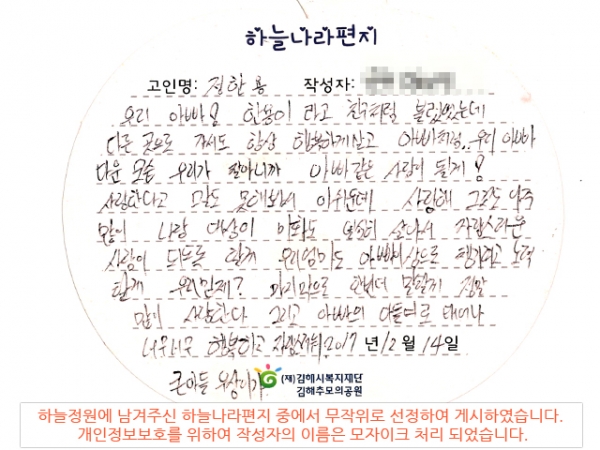 하늘나라편지
고인명: 정한용 작성자:
우리 아빠! 한용이 라고 친구처럼 불렀었는데
다른 곳으로 가서도 항상 행복하게살고 아빠처럼.. 우리 아빠
다운 모습 우리가 잘아니까 아빠같은 사람이 될게!
사랑한다고 말도 못해봐서 아쉬운데 사랑해 그것도 아주
많이 나랑 이 열심히 살아서 자랑스러운
사람이 되도록 할게 우리엄마도 아빠 이상으로 챙기려고 노력
할게 우리 마지막으로 한번더 말할게 정말
많이 사랑한다 그리고 아빠의 아들 로 태어나
너무너무 행복하고 자랑스러워 2017 년 12 월 14 일
큰아들 이가
(재)김해시복지재단
김해추모의공원
하늘정원에 남겨주신 하늘나라편지 중에서 무작위로 선정하여 게시하였습니다.
개인정보보호를 위하여 작성자의 이름은 모자이크 처리 되었습니다.